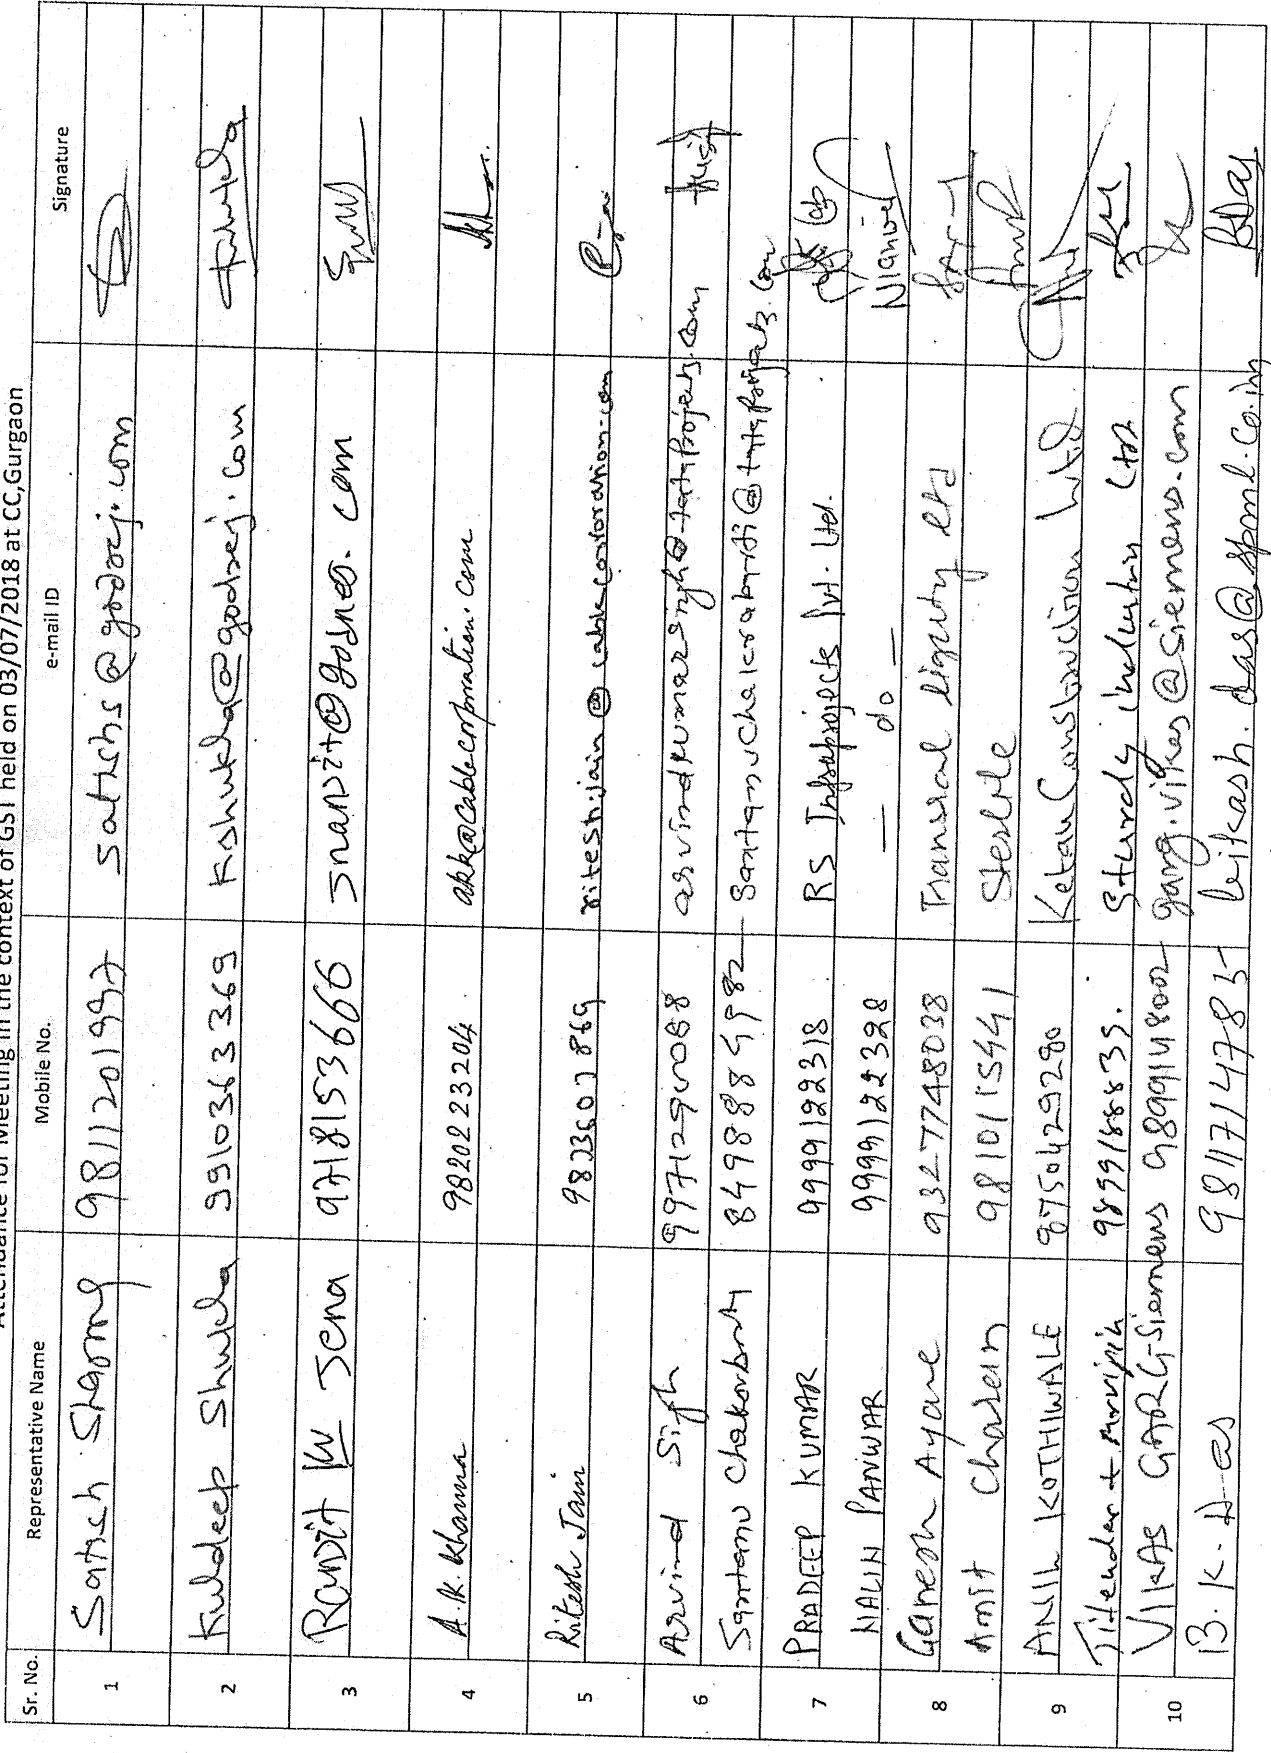 Attendance for Meeting in the context of GST held on 03/07/2018 at CC,Gurgaon
Sr. No. Representative Name Mobile No. e-mail ID Signature
1 Satish Sharma 9811201997 satishs@godrej.com
2 Kuldeep Shukla 9910363369 Kshukla@godrej.com
3 Ranjit Kr Jena 9718153666 jranjit@godrej.com
4 A.K. Khanna 9820223204 akk@cablecorporation.com
5 Ritesh Jain 9823607869 ritesh.jain@cablecorporation.com
6 Arvind Singh arvindkumarsingh@tataprojects.com
Santanu Chakraborty santanuchakraborti@tataprojects.com
7 PRADEEP KUMAR 9999122318 RS Infraprojects Pvt. Ltd.
NALIN PANWAR 9999122328 — do —
8 Ganesh Ayare 9327748038 Transrail ligting Ltd
Amit 9810115441 Sterlite
9 ANIL KOTHIWALE 8750429280 Ketan Construction Ltd
Jitendar 9899188839. Sturdy industries Ltd
10 VIKAS GARG-Siemens 9899914800 garg.vikas@siemens.com
B.K. Das 9811714785 bikash.das@spml.co.in